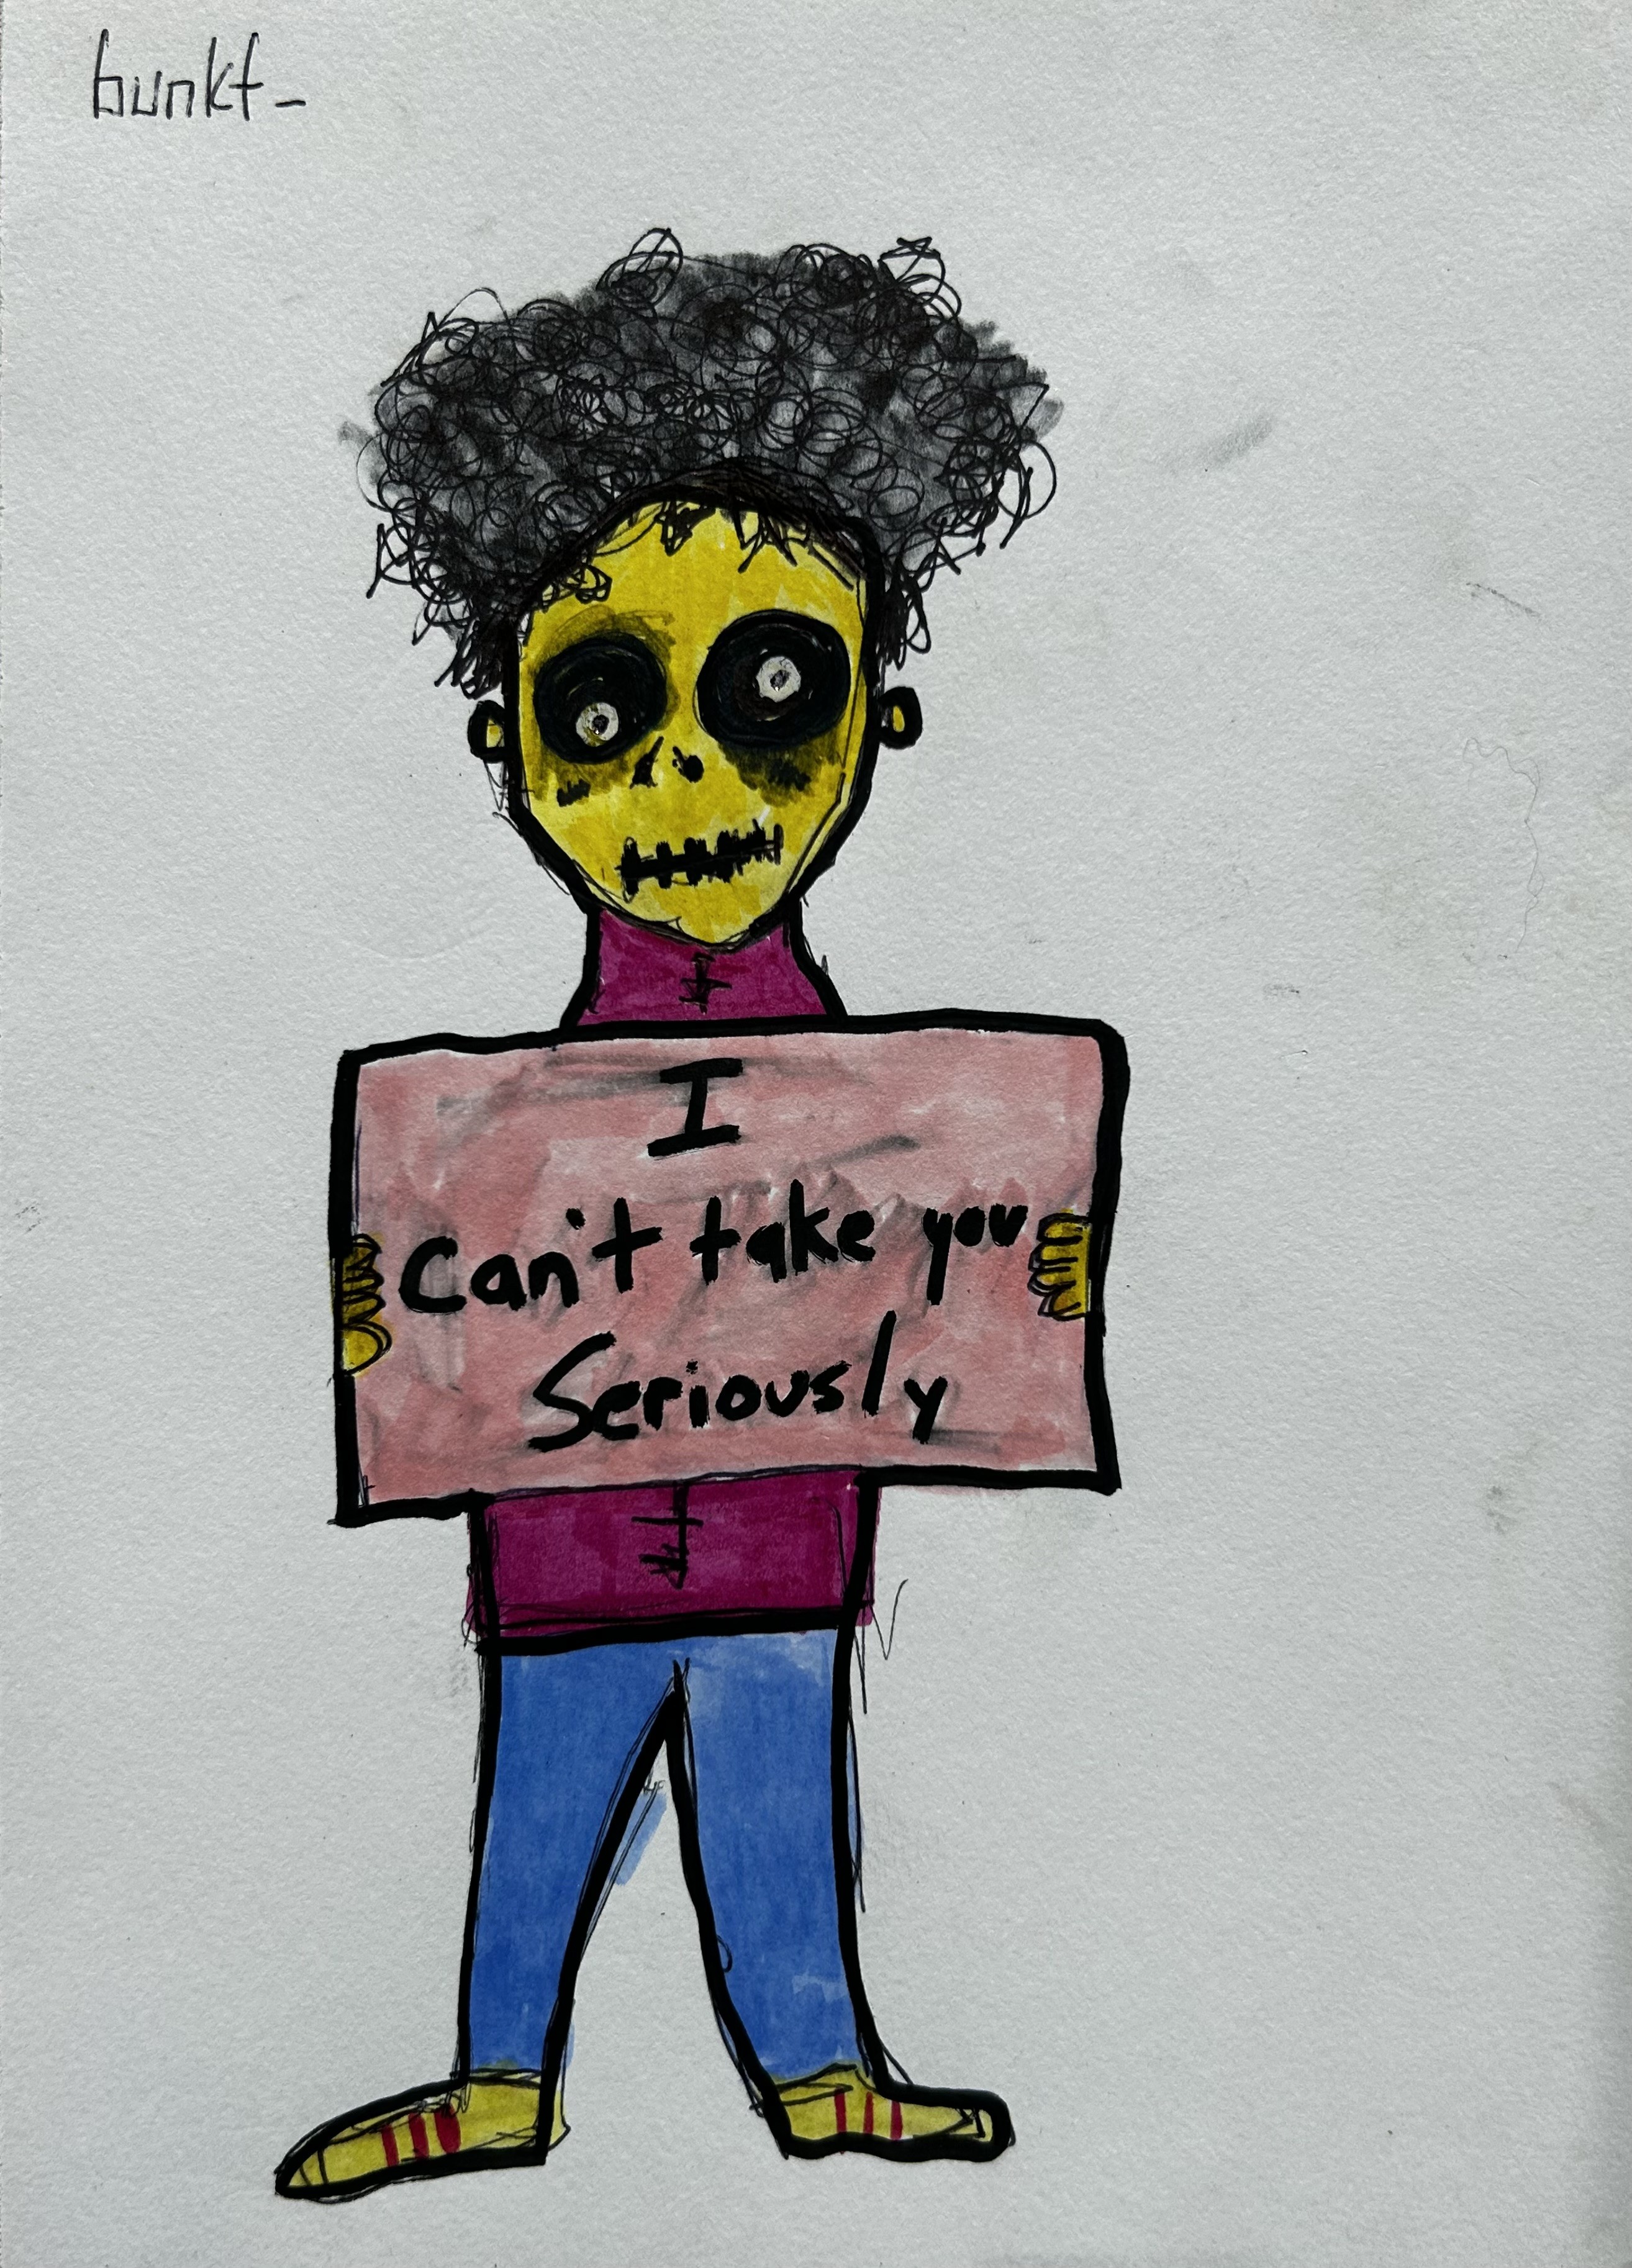 bunkt_
I
Can't take you
Seriously